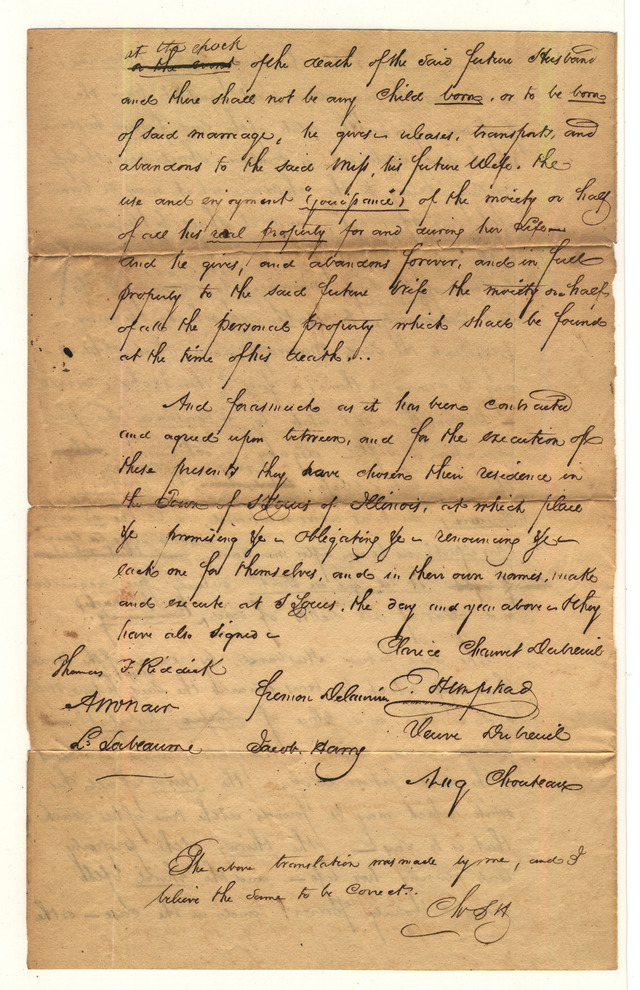 at the epoch
or the event of the death of the said future Husband
and there shall not be any Child born, or to be born
of said marriage, he gives releases, transports, and
abandons to the said Miss, his future Wife. the
use and enjoyment "(jouissance") of the moiety or half
of all his real property for and during her Life
And he gives, and abandons forever, and in full
property to the said future Wife the moiety or half
of all the personal Property which shall be found
at the time of his death...
And forasmuch as it has been contracted
and agreed upon between, and for the execution of
these presents they have chosen their residence in
the Town of St Louis of Illinois, at which place
&c promising &c obligating &c renouncing &c
each one for themselves, and in their own names, make
and execute at St Louis, the day and year above they
have also signed
Clarice Chauvet Dubreuil
Thomas F. Riddick
E. Hempstead
A McNair
Veuve Dubreuil
Ls Labeaume
Jacob Harry
Aug Chouteau
The above translation was made by me, and I
believe the same to be Correct.